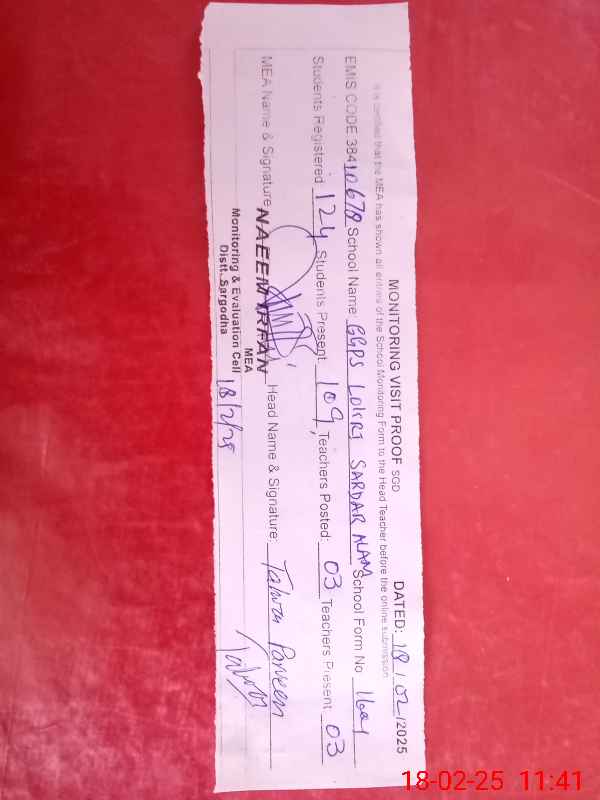 MONITORING VISIT PROOF SGD DATED: 18/02/2025
It is certified that the MEA has shown all entries of the School Monitoring Form to the Head Teacher before the online submission
EMIS CODE 38410678 School Name: GGPS LOKRI SARDAR ALAM School Form No
Students Registered 124 Students Present 109 Teachers Posted: 03 Teachers Present 03
MEA Name & Signature NAEEM IRFAN Head Name & Signature: Parveen
MEA
Monitoring & Evaluation Cell
Distt. Sargodha
18/2/25
18-02-25 11:41